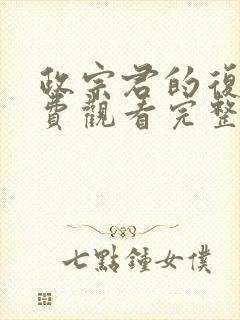 政宗君的復
費觀看完整
七點鍾女僕